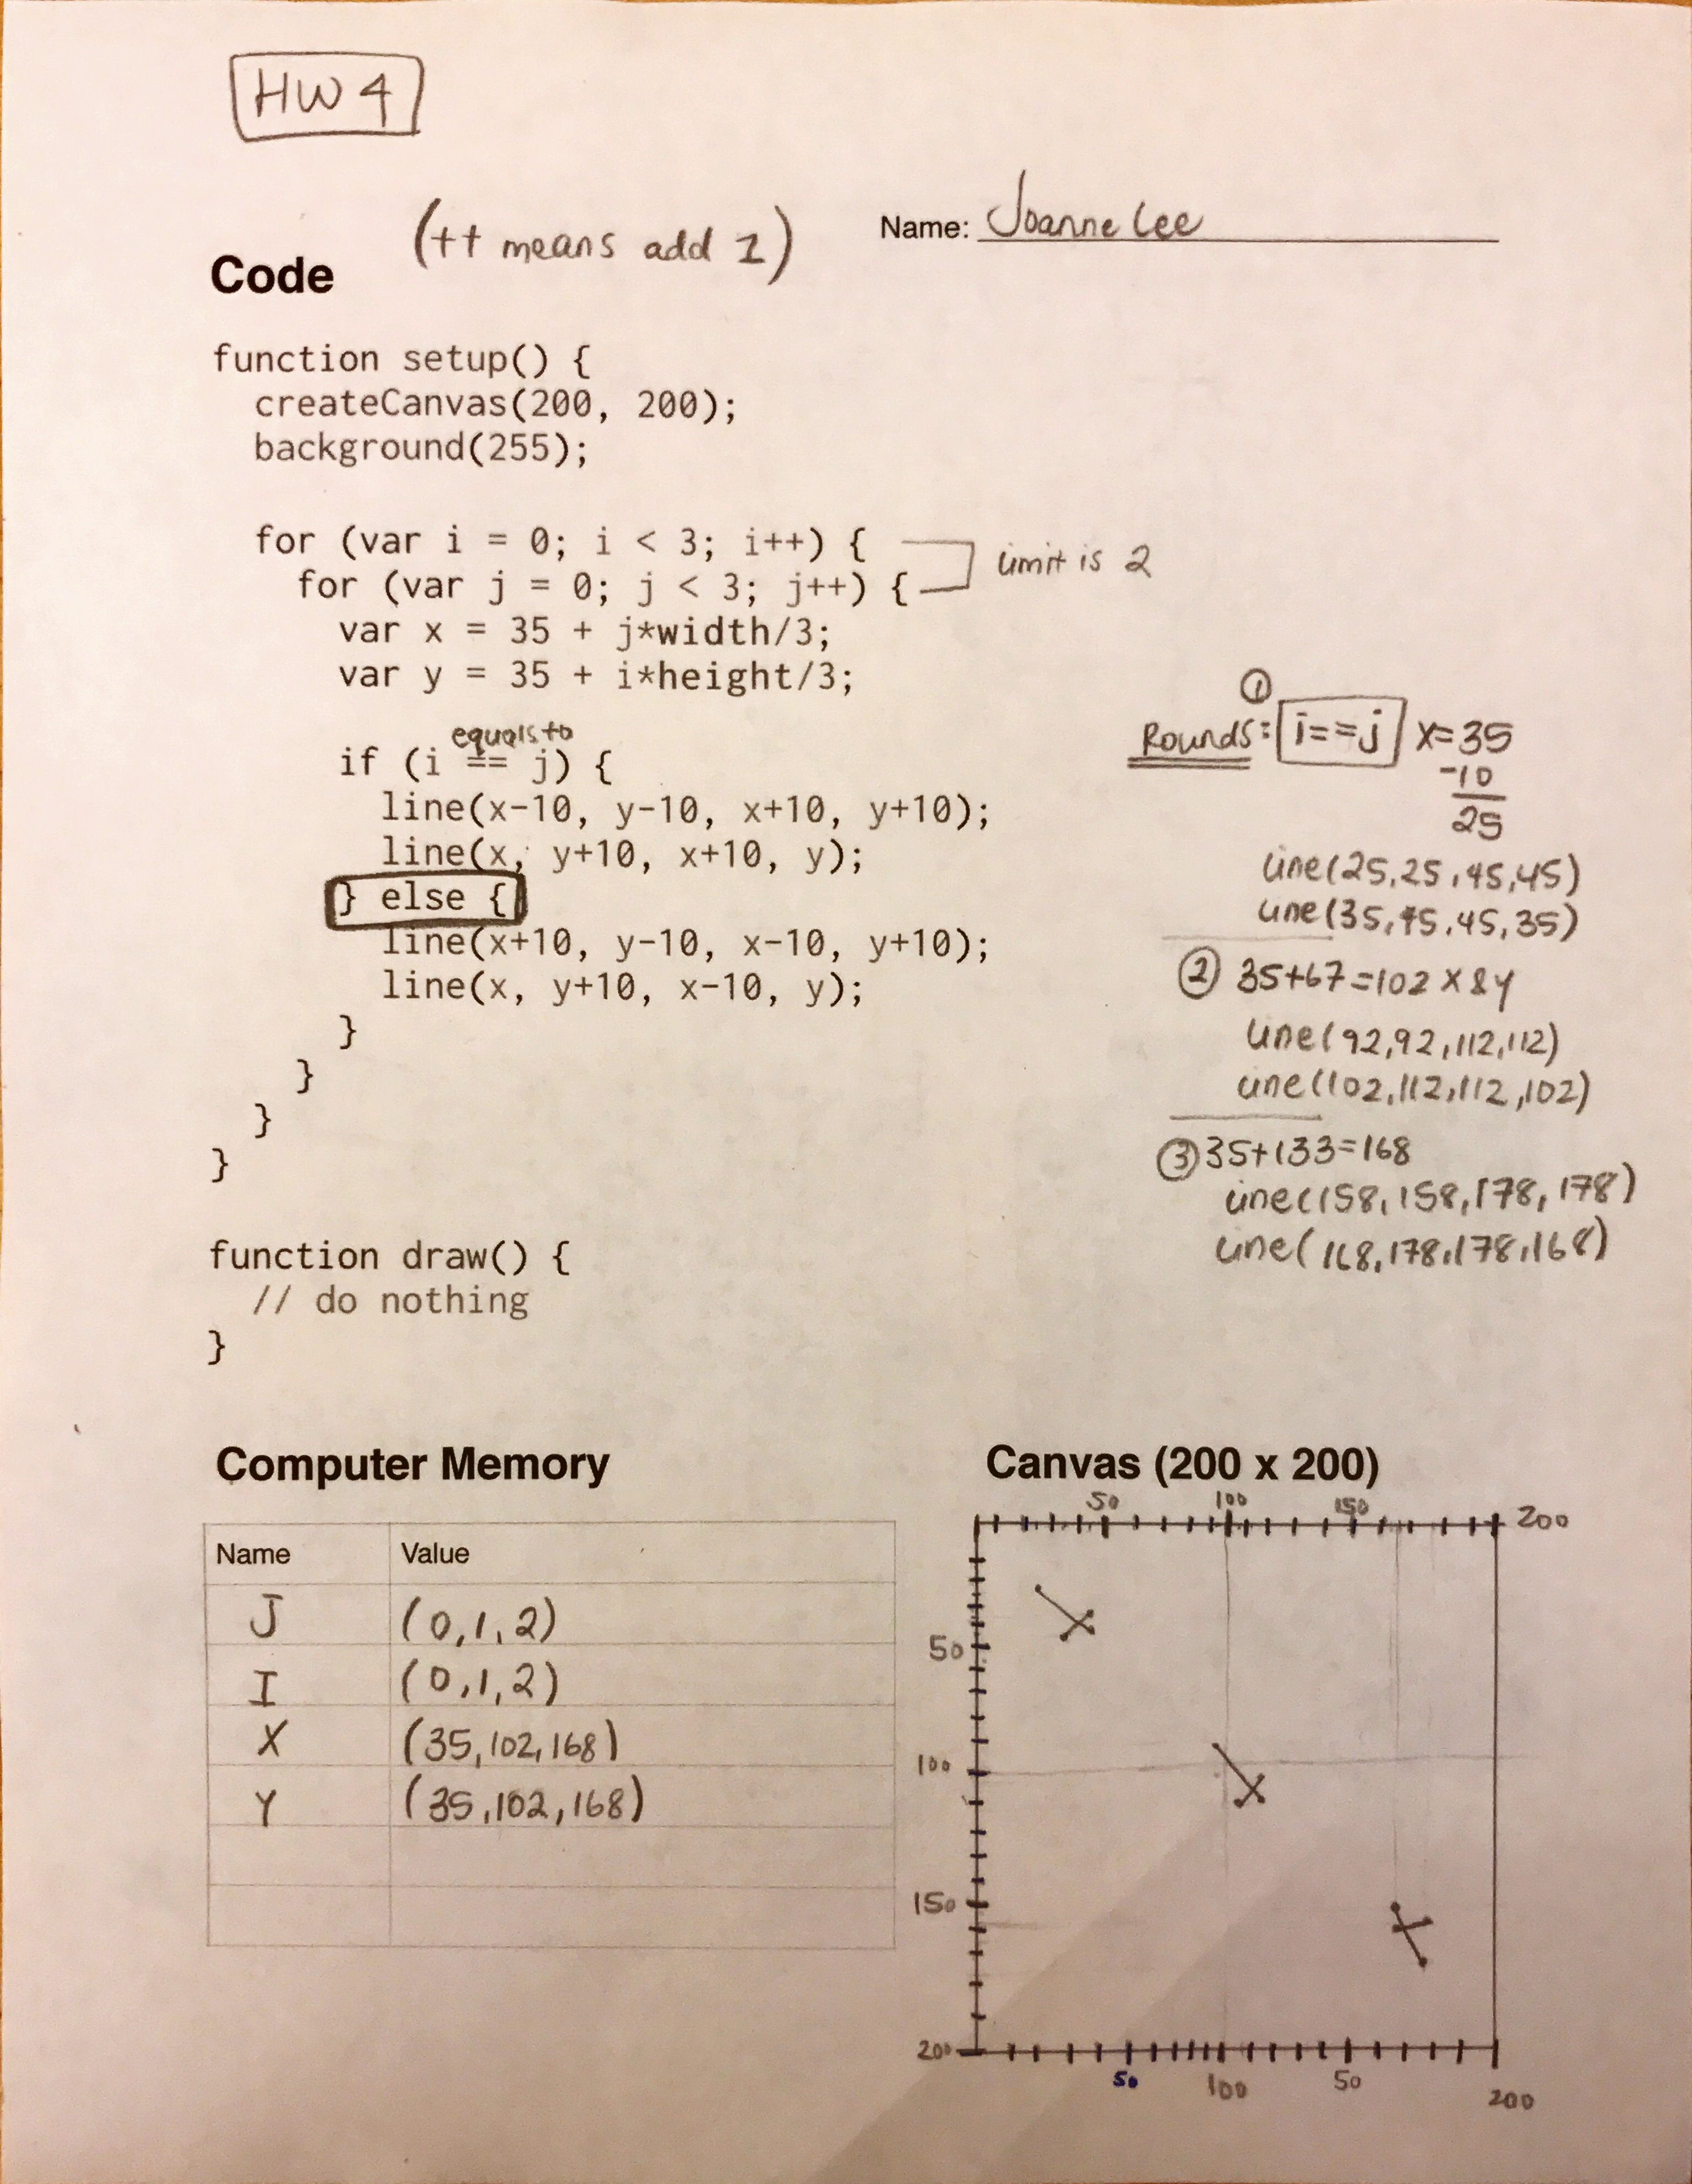 HW 4
(++ means add 1)
Name: Joanne Lee
Code
function setup() {
createCanvas(200, 200);
background(255);
for (var i = 0; i < 3; i++) {
for (var j = 0; j < 3; j++) {
limit is 2
var x = 35 + j*width/3;
var y = 35 + i*height/3;
equals to
if (i == j) {
line(x-10, y-10, x+10, y+10);
line(x, y+10, x+10, y);
} else {
line(x+10, y-10, x-10, y+10);
line(x, y+10, x-10, y);
}
}
}
}
function draw() {
// do nothing
}
①
Rounds: i==j x=35
-10
25
line(25,25,45,45)
line(35,45,45,35)
② 35+67=102 x & y
line(92,92,112,112)
line(102,112,112,102)
③ 35+133=168
line(158,158,178,178)
line(168,178,178,168)
Computer Memory
Name Value
J (0,1,2)
I (0,1,2)
X (35,102,168)
Y (35,102,168)
Canvas (200 x 200)
50 100 150 200
50
100
150
200
50 100 50 200